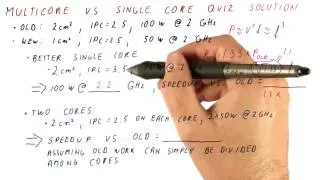 MULTICORE VS SINGLE CORE QUIZ SOLUTION
• OLD: 2cm², IPC=2.5, 100W @ 2 GHz
• NEW: 1cm², IPC=2.5, 50W @ 2GHz
• BETTER SINGLE CORE
• 2cm², IPC=3.5,
⇒ 100W @ 2.2 GHz, SPEEDUP VS OLD =
• TWO CORES
• 2cm², IPC=2.5 ON EACH CORE, 2x50W @ 2GHz
⇒ SPEEDUP VS OLD =
ASSUMING OLD WORK CAN SIMPLY BE DIVIDED
AMONG CORES